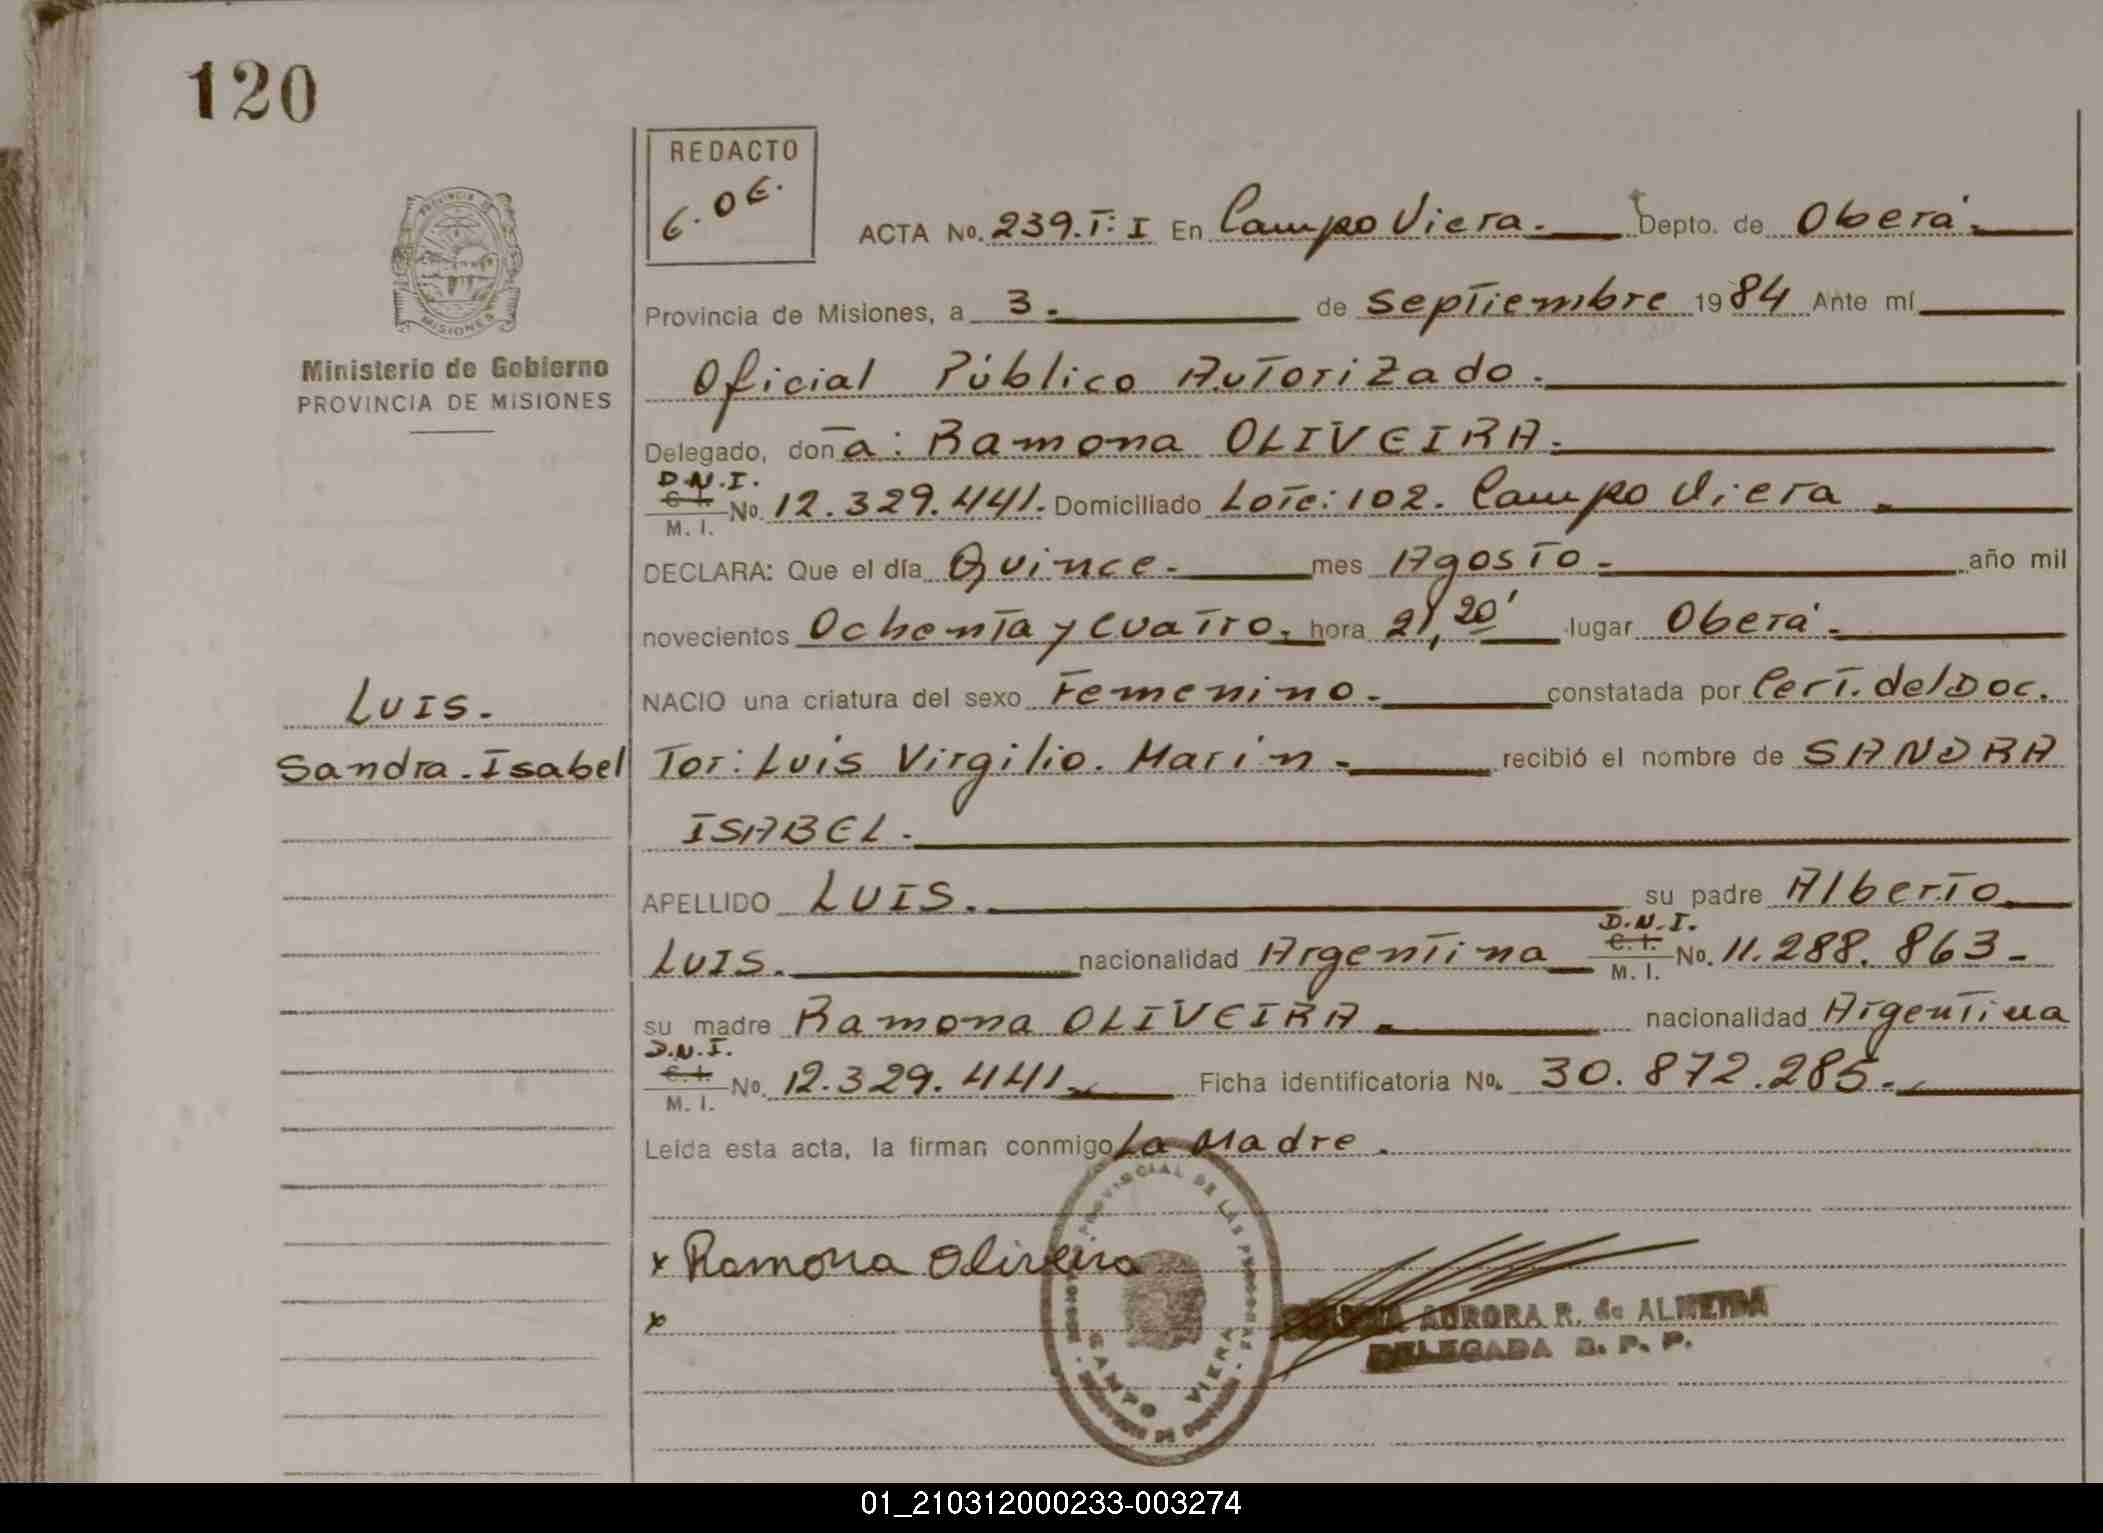 120
REDACTO
G.OE.
ACTA No. 239.T: I En Campo Viera. Depto. de Oberá.
PROVINCIA DE
MISIONES
Provincia de Misiones, a 3. de Septiembre 1984 Ante mí
Ministerio de Gobierno
PROVINCIA DE MISIONES
Oficial Público Autorizado.
Delegado, doña: Ramona OLIVEIRA.
D.N.I.
C. I.
M. I.
No. 12.329.441. Domiciliado Lote: 102. Campo Viera.
DECLARA: Que el día Quince. mes Agosto. año mil
novecientos Ochenta y Cuatro. hora 21,20' lugar Oberá.
NACIO una criatura del sexo Femenino. constatada por Cert. del Doc.
Luis.
Sandra. Isabel
Tor: Luis Virgilio. Marin. recibió el nombre de SANDRA
ISABEL.
APELLIDO LUIS. su padre Alberto
LUIS. nacionalidad Argentina D.N.I. C. I. M. I. No. 11.288.863.
su madre Ramona OLIVEIRA. nacionalidad Argentina
D.N.I.
C. I.
M. I.
No. 12.329.441. Ficha identificatoria No. 30.872.285.
Leída esta acta, la firman conmigo La Madre.
PROVINCIAL DE LAS PERSONAS
CAMPO VIERA
x Ramona Oliveira
x
AURORA R. de ALMEIDA
DELEGADA R. P. P.
01_210312000233-003274